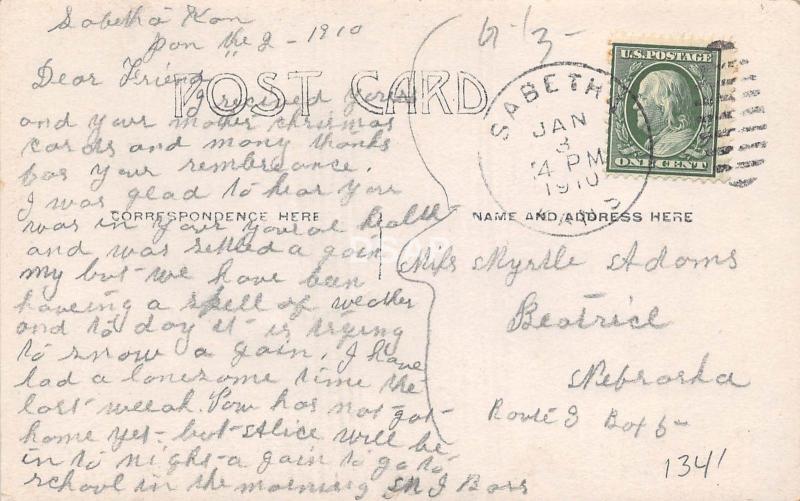 Sabetha Kan
Jan the 2 - 1910
Dear Friend
POST CARD
I recived your
and your mother christmas
cards and many thanks
for your rembreance.
I was glad to hear you
was in your yourol health
and was settled a gain
my but we have been
haveing a spell of weather
and to day it is trying
to snow a gain. I have
had a lonesome time the
last weeak. Pow has not got
home yet - but Alice will be
in to night a gain to go to
school in the morning
CORRESPONDENCE HERE
6-13-
SABETHA
JAN
3
4 PM
1910
KANS
U.S. POSTAGE
ONE CENT
NAME AND ADDRESS HERE
Miss Myrtle Adams
Beatrice
Nebraska
Route 3 Box 5-
1341